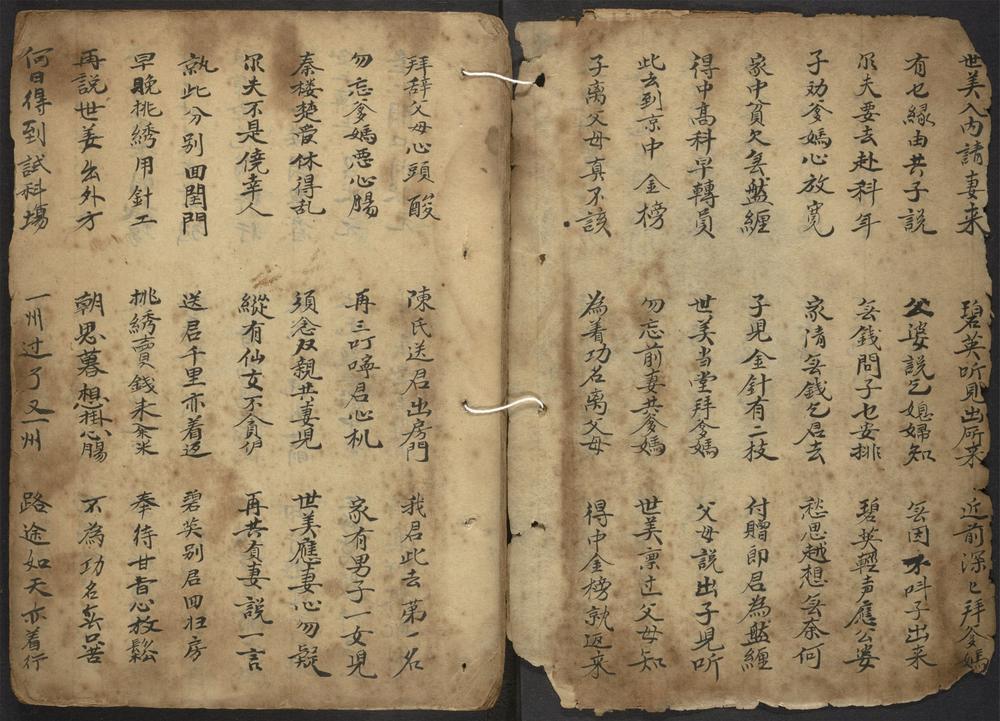 世美入内請妻来 碧英听見出所来 近前深〻拜爹媽
有乜縁由共子説 公婆説乞媳婦知 無因不叫子出来
尔夫要去赴科年 無錢問子乜安排 碧英輕声應公婆
子劝爹媽心放寛 家清無錢乞君去 愁思越想無奈何
家中貧欠無盤纏 子児金針有二枝 付贈郎君為盤纏
得中高科早轉員 世美当堂拜爹媽 父母説出子児听
此去到京中金榜 勿忘前妻共爹媽 世美禀过父母知
子離父母真不該 為着功名離父母 得中金榜就返来
拜辞父母心頭酸 陳氏送君出房門 我君此去第一名
勿忘爹媽惡心腸 再三叮嚀君心机 家有男子一女児
秦楼楚爱休得乱 須念双親共妻児 世美應妻心勿疑
尔夫不是僥幸人 縱有仙女不貪 再共貞妻説一言
就此分别回閨門 送君千里亦着返 碧英别君回归房
早晚挑綉用針工 挑綉賣錢来籴米 奉待甘旨心放鬆
再説世美出外方 朝思暮想掛心腸 不為功名無只苦
何日得到試科塲 一州过了又一州 路途如天亦着行